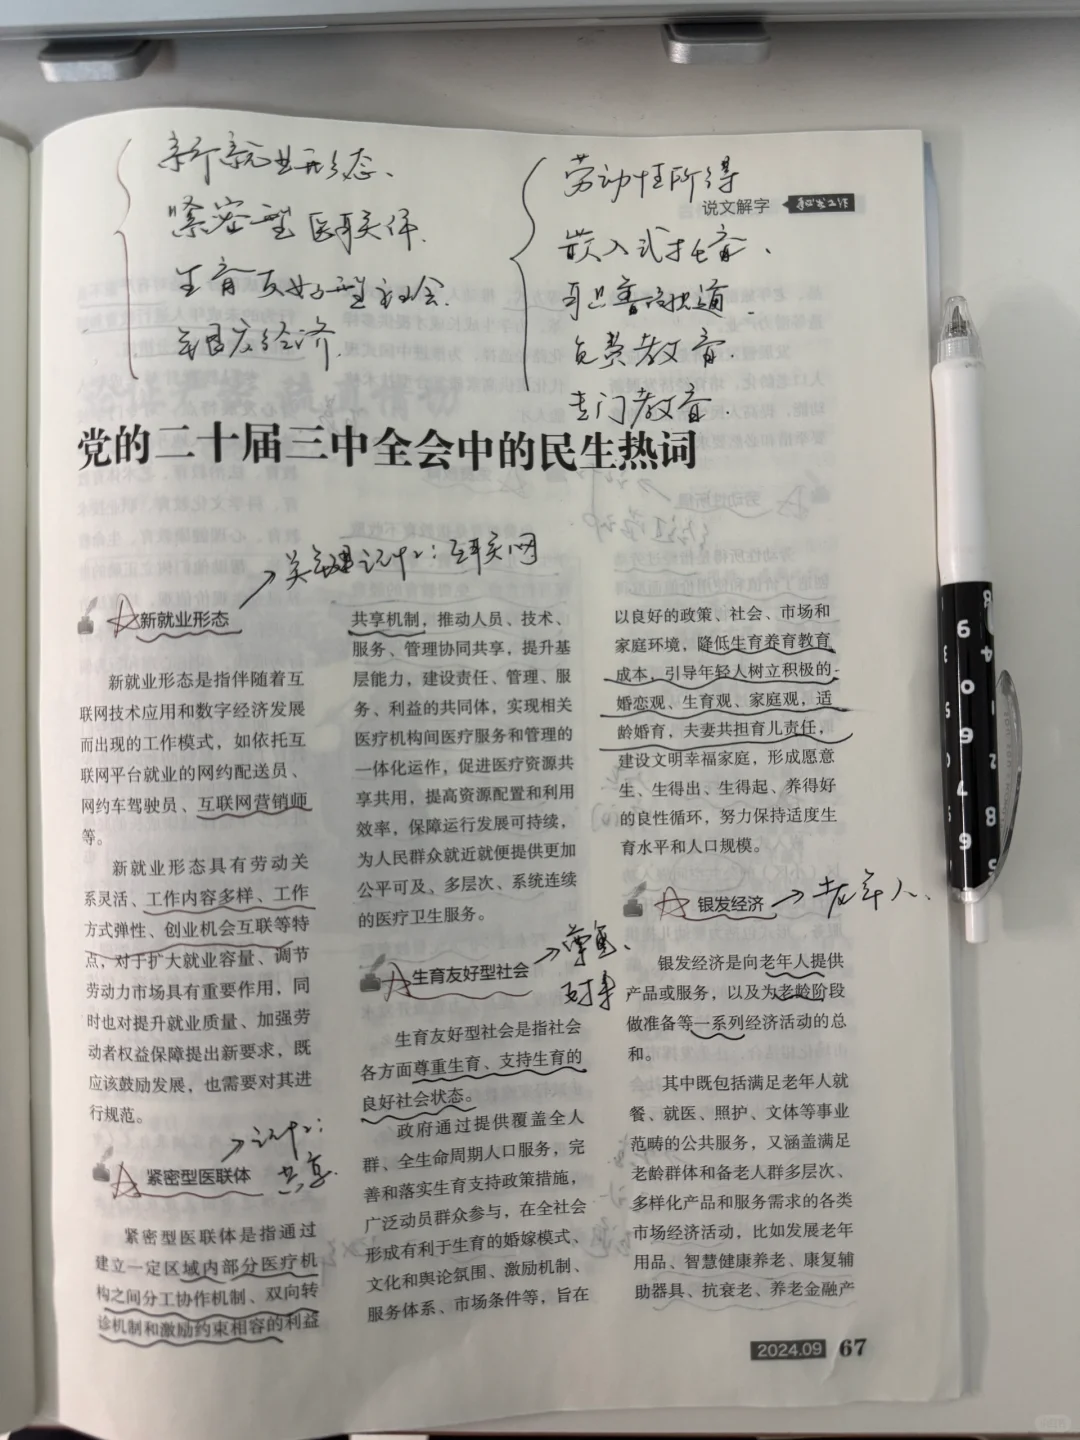 新就业形态、
紧密型医联体、
生育友好型社会、
银发经济、
劳动性所得
说文解字 秘书工作
嵌入式托育、
耳目普惠快道、
免费教育、
专门教育、
党的二十届三中全会中的民生热词
→关键词：互联网
新就业形态
新就业形态是指伴随着互
联网技术应用和数字经济发展
而出现的工作模式，如依托互
联网平台就业的网约配送员、
网约车驾驶员、互联网营销师
等。
新就业形态具有劳动关
系灵活、工作内容多样、工作
方式弹性、创业机会互联等特
点，对于扩大就业容量、调节
劳动力市场具有重要作用，同
时也对提升就业质量、加强劳
动者权益保障提出新要求，既
应该鼓励发展，也需要对其进
行规范。
紧密型医联体
共享
紧密型医联体是指通过
建立一定区域内部分医疗机
构之间分工协作机制、双向转
诊机制和激励约束相容的利益
共享机制，推动人员、技术、
服务、管理协同共享，提升基
层能力，建设责任、管理、服
务、利益的共同体，实现相关
医疗机构间医疗服务和管理的
一体化运作，促进医疗资源共
享共用，提高资源配置和利用
效率，保障运行发展可持续，
为人民群众就近就便提供更加
公平可及、多层次、系统连续
的医疗卫生服务。
生育友好型社会
→尊重、
支持
生育友好型社会是指社会
各方面尊重生育、支持生育的
良好社会状态。
政府通过提供覆盖全人
群、全生命周期人口服务，完
善和落实生育支持政策措施，
广泛动员群众参与，在全社会
形成有利于生育的婚嫁模式、
文化和舆论氛围、激励机制、
服务体系、市场条件等，旨在
以良好的政策、社会、市场和
家庭环境，降低生育养育教育
成本，引导年轻人树立积极的
婚恋观、生育观、家庭观，适
龄婚育，夫妻共担育儿责任，
建设文明幸福家庭，形成愿意
生、生得出、生得起、养得好
的良性循环，努力保持适度生
育水平和人口规模。
银发经济 →老年人、
银发经济是向老年人提供
产品或服务，以及为老龄阶段
做准备等一系列经济活动的总
和。
其中既包括满足老年人就
餐、就医、照护、文体等事业
范畴的公共服务，又涵盖满足
老龄群体和备老人群多层次、
多样化产品和服务需求的各类
市场经济活动，比如发展老年
用品、智慧健康养老、康复辅
助器具、抗衰老、养老金融产
2024.09 67